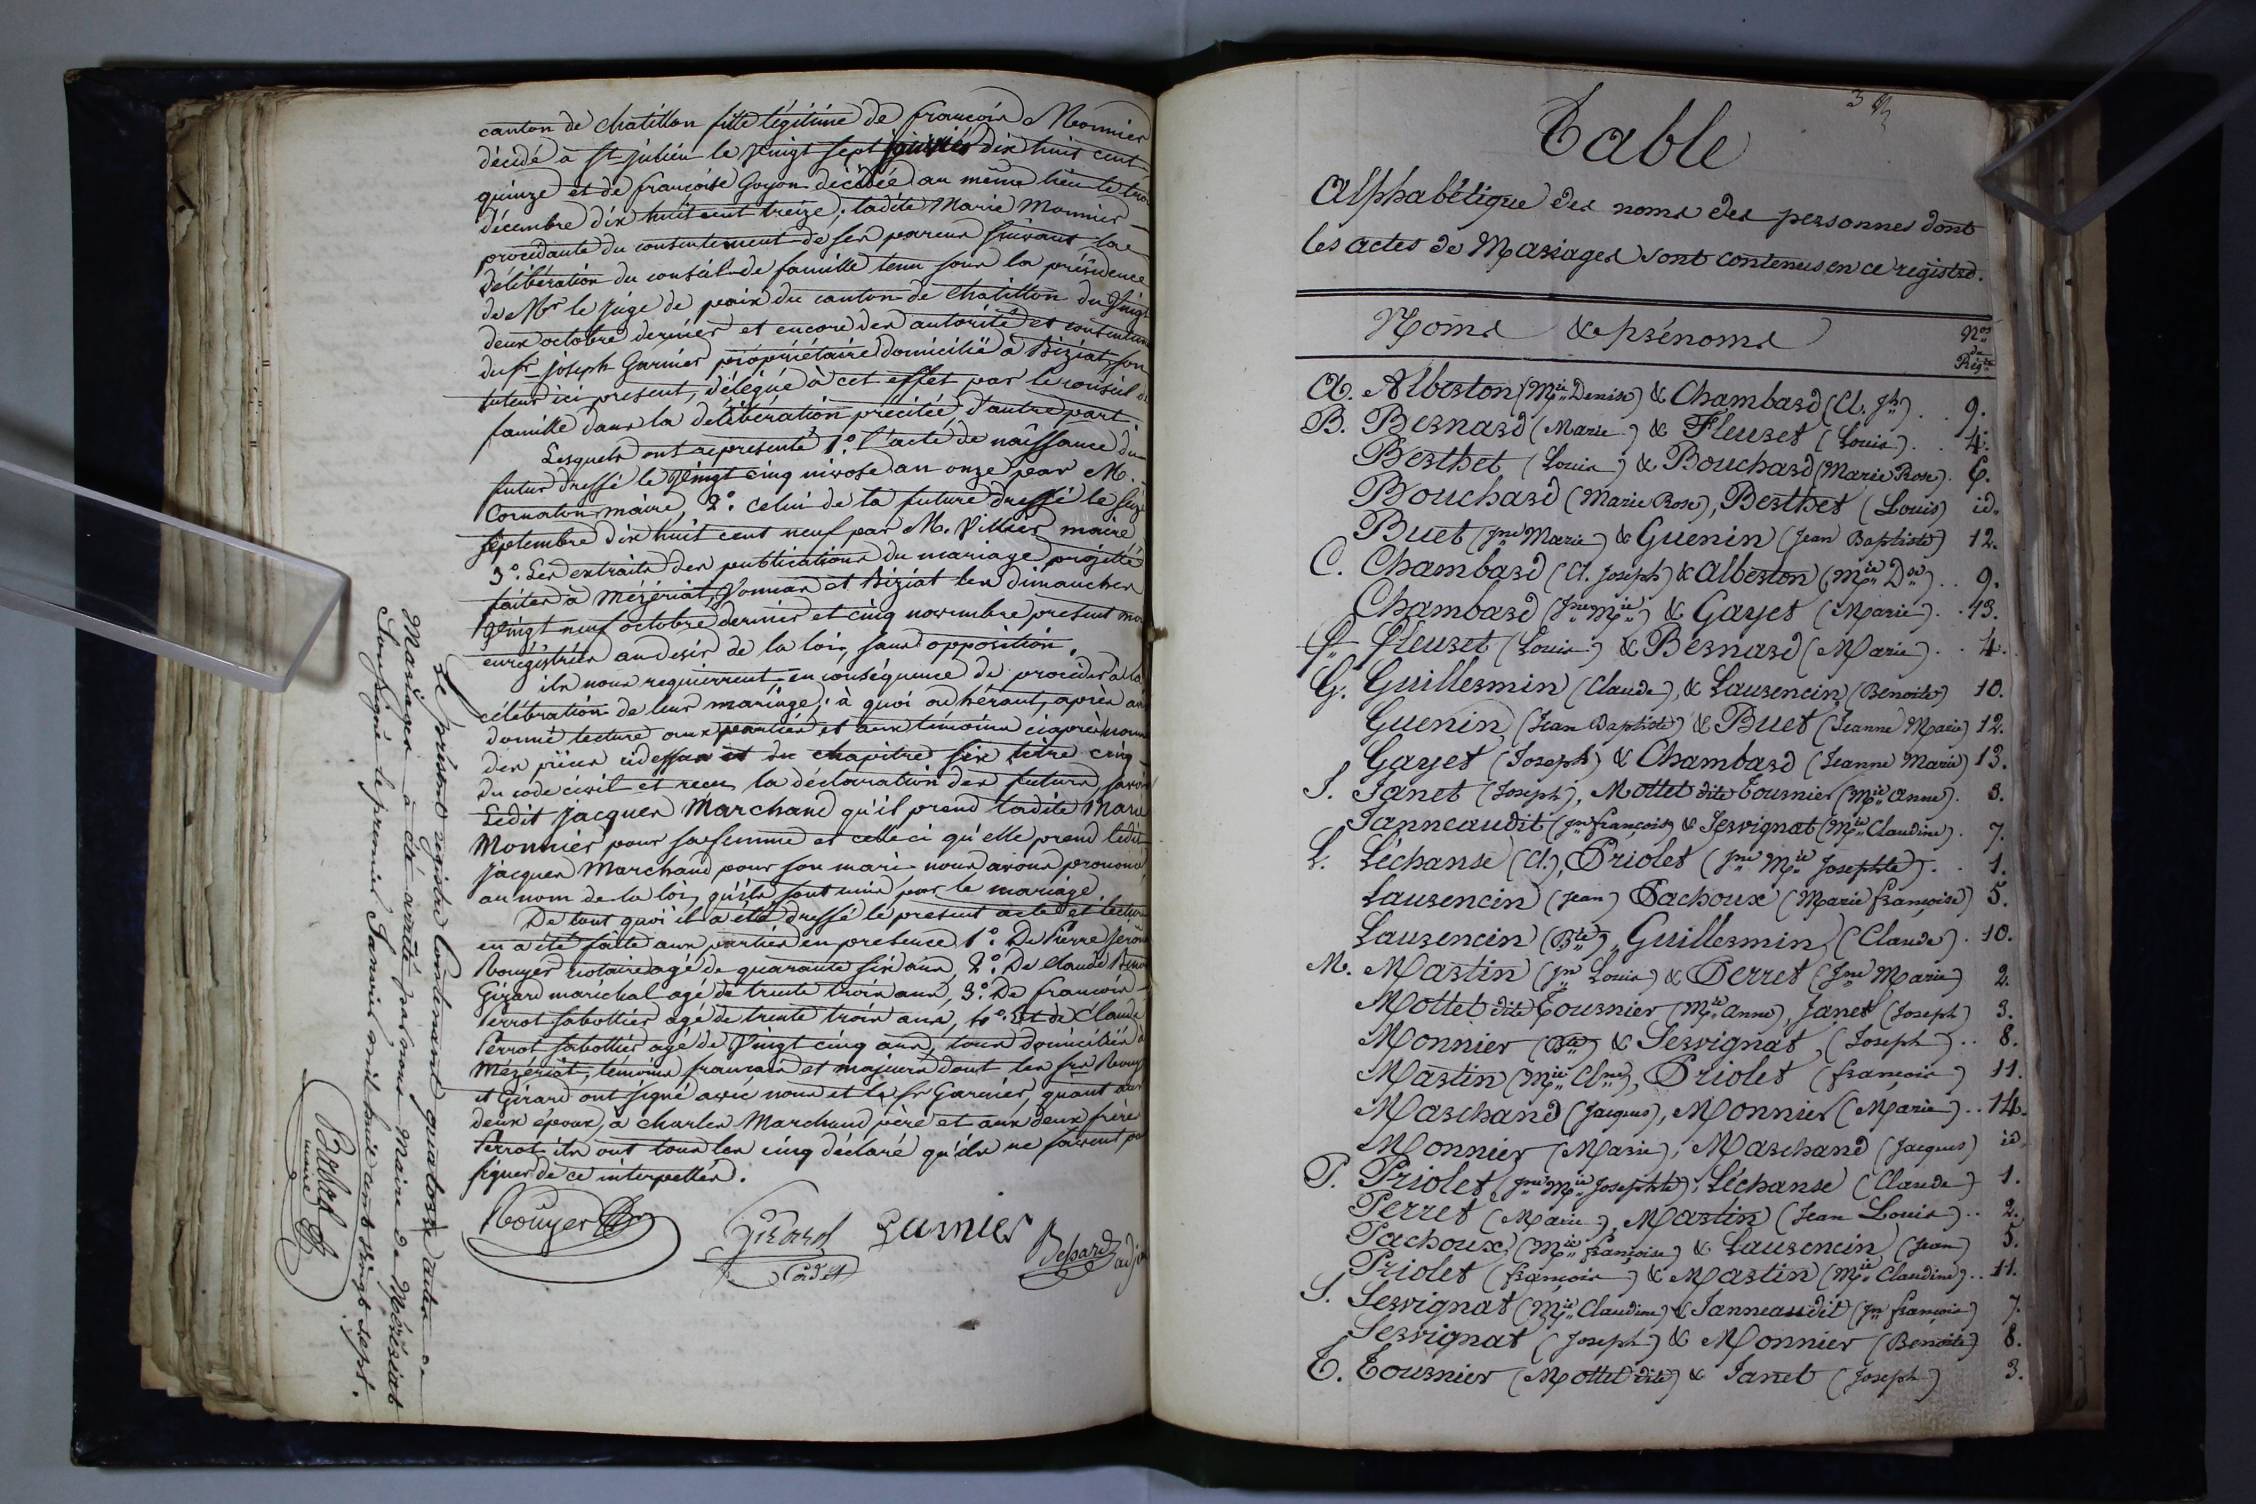 canton de chatillon fille légitime de françois Monnier
décédé à St julien le vingt sept janvier dix huit cent
quinze et de françoise Goyon décédée au même lieu le trois
décembre dix huit cent treize; ladite Marie Monnier
procédante du consentement de ses pareus suivant la
délibération du conseil de famille tenu sous la présidence
de Mr le juge de paix du canton de Chatillon du vingt
deux octobre dernier et encore des autorité et consentement
du sr joseph Garnier propriétaire domicilié à Biziat, son
tuteur ici present, délégué à cet effet par le conseil de
famille dans la délibération précitée, d'autre part.
Lesquels ont representé 1º. l'acte de naissance du
futur dressé le vingt cinq nivose an onze par M.
Cornaton maire, 2º. celui de la future dressé le seize
septembre dix huit cent neuf par M. Villier maire
3º. les extraits des publications du mariage projetté
faites à Mézériat, Vonnas et Biziat les dimanches
vingt neuf octobre dernier et cinq novembre present mois
enrégistrées au desir de la loi, sans opposition.
ils nous requierrent en conséquence de procéder à la
célébration de leur mariage; à quoi adhérant, après avoir
donné lecture aux parties et aux témoins ciaprès nommés
des pièces cidessus et du chapitre six titre cinq
du code civil et recu la déclaration des futurs, savoir
Ledit jacques Marchand qu'il prend ladite Marie
Monnier pour sa femme et celle ci qu'elle prend ledit
jacques Marchand pour son mari nous avons prononcé
au nom de la loi, qu'ils sont unis par le mariage
De tout quoi il a été dressé le present acte et lecture
en a été faite aux parties en presence 1º. De Pierre Jerome
Rouyer notaire agé de quarante six ans, 2º. De claude
Girard maréchal agé de trente trois ans, 3º. De francois
Perrot sabottier agé de trente trois ans, 4º. et de Claude
Perrot sabottier agé de vingt cinq ans, tous domiciliés à
Mézériat, témoins francais et majeurs dont les srs Rouyer
et Girard ont signé avec nous et le sr Garnier, quant aux
deux époux, à charles Marchand père et aux deux frères
Perrot ils ont tous les cinq déclaré qu'ils ne savent pas
signer de ce interpellés.
Rouyer Girard Cadet Garnier Bessard adj
Le présent registre Contenant quatorze actes de
Mariages à été arrêté par nous Maire de Mézériat
Soussigné le premier Janvier mil huit cent vingt sept.
maire
Table
Alphabétique des noms des personnes dont
les actes de Mariages sont contenus en ce registre.
Noms & prénoms Nos de Regtre
A. Alberton (Mie Denise) & Chambard (Cl. Jh) . . 9.
B. Bernard (Marie) & Fleuret (Louis) . . 4.
Berthet (Louis) & Bouchard (Marie Rose) . 6.
Bouchard (Marie Rose), Berthet (Louis) id.
Buet (Jne Marie) & Guenin (Jean Baptiste) 12.
C. Chambard (Cl. Joseph) & Alberton (Mie Dse) . . 9.
Chambard (Jne Mie) & Gayet (Marie) . . 13.
F. Fleuret (Louis) & Bernard (Marie) . . 4.
G. Guillermin (Claude), & Laurencin (Benoite) 10.
Guenin (Jean Baptiste) & Buet (Jeanne Marie) 12.
Gayet (Joseph) & Chambard (Jeanne Marie) 13.
J. Janet (Joseph), Mottet dite Tournier (Mie anne) . 3.
Janneaudit (Jn françois) & Servignat (Mie Claudine) . 7.
L. Léchanse (Cl.), Priolet (Jne Mie Josephte) . . 1.
Laurencin (Jean) Pachoux (Marie françoise) 5.
Laurencin (Bte), Guillermin (Claude) . 10.
M. Martin (Jn Louis) & Perret (Jne Marie) 2.
Mottet dite Tournier (Mie anne), Janet (Joseph) 3.
Monnier (Bte) & Servignat (Joseph) . . 8.
Martin (Mie Clne), Priolet (françois) 11.
Marchand (Jacques), Monnier (Marie) . . 14.
Monnier (Marie), Marchand (Jacques) id.
P. Priolet (Jne Mie Josephte), Léchanse (Claude) 1.
Perret (Marie), Martin (Jean Louis) . . 2.
Pachoux (Mie françoise) & Laurencin (Jean) 5.
Priolet (françois) & Martin (Mie Claudine) . . 11.
S. Servignat (Mie Claudine) & Janneaudit (Jn françois) 7.
Servignat (Joseph) & Monnier (Benoite) 8.
T. Tournier (Mottet dite) & Janet (Joseph) 3.